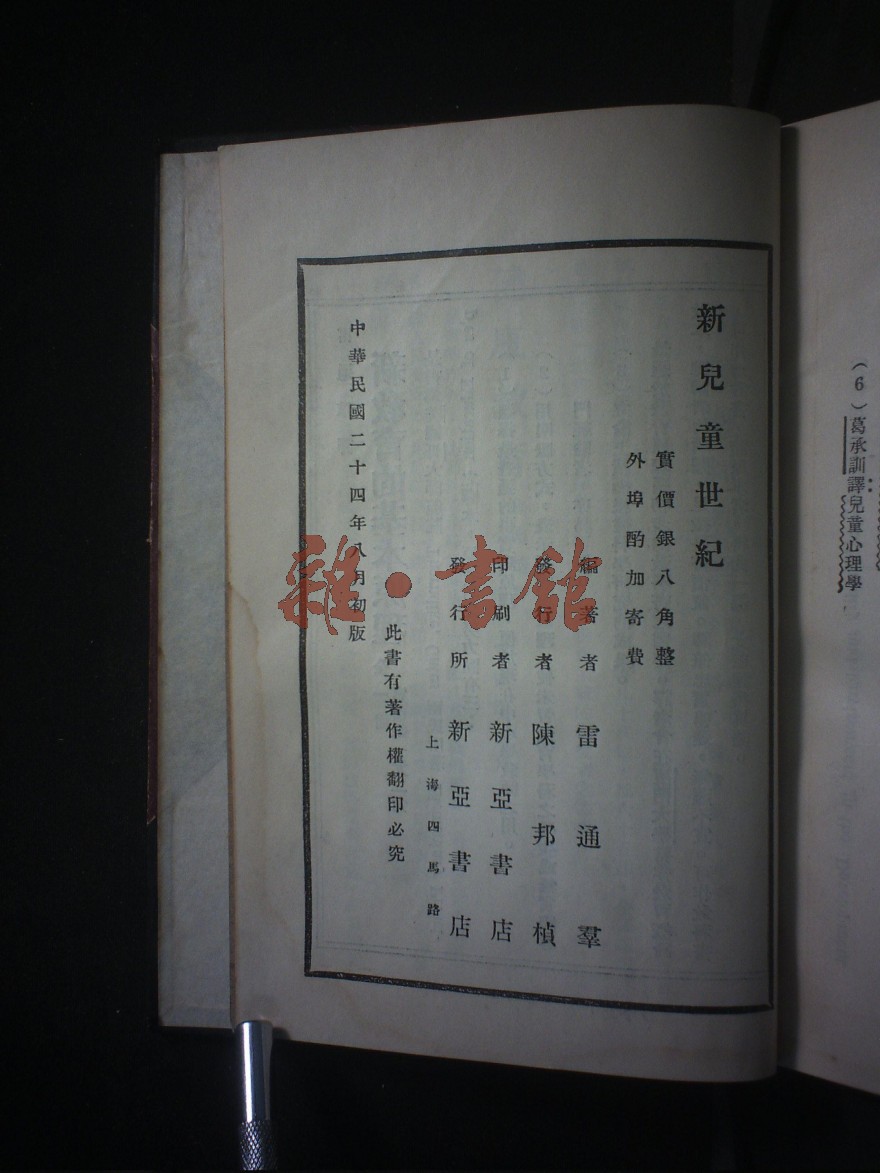 （6）葛承訓譯兒童心理學
新兒童世紀
實價銀八角整
外埠酌加寄費
編著者 雷通羣
發行者 陳邦楨
印刷者 新亞書店
發行所 新亞書店
上海四馬路
此書有著作權翻印必究
中華民國二十四年八月初版
雜·書館